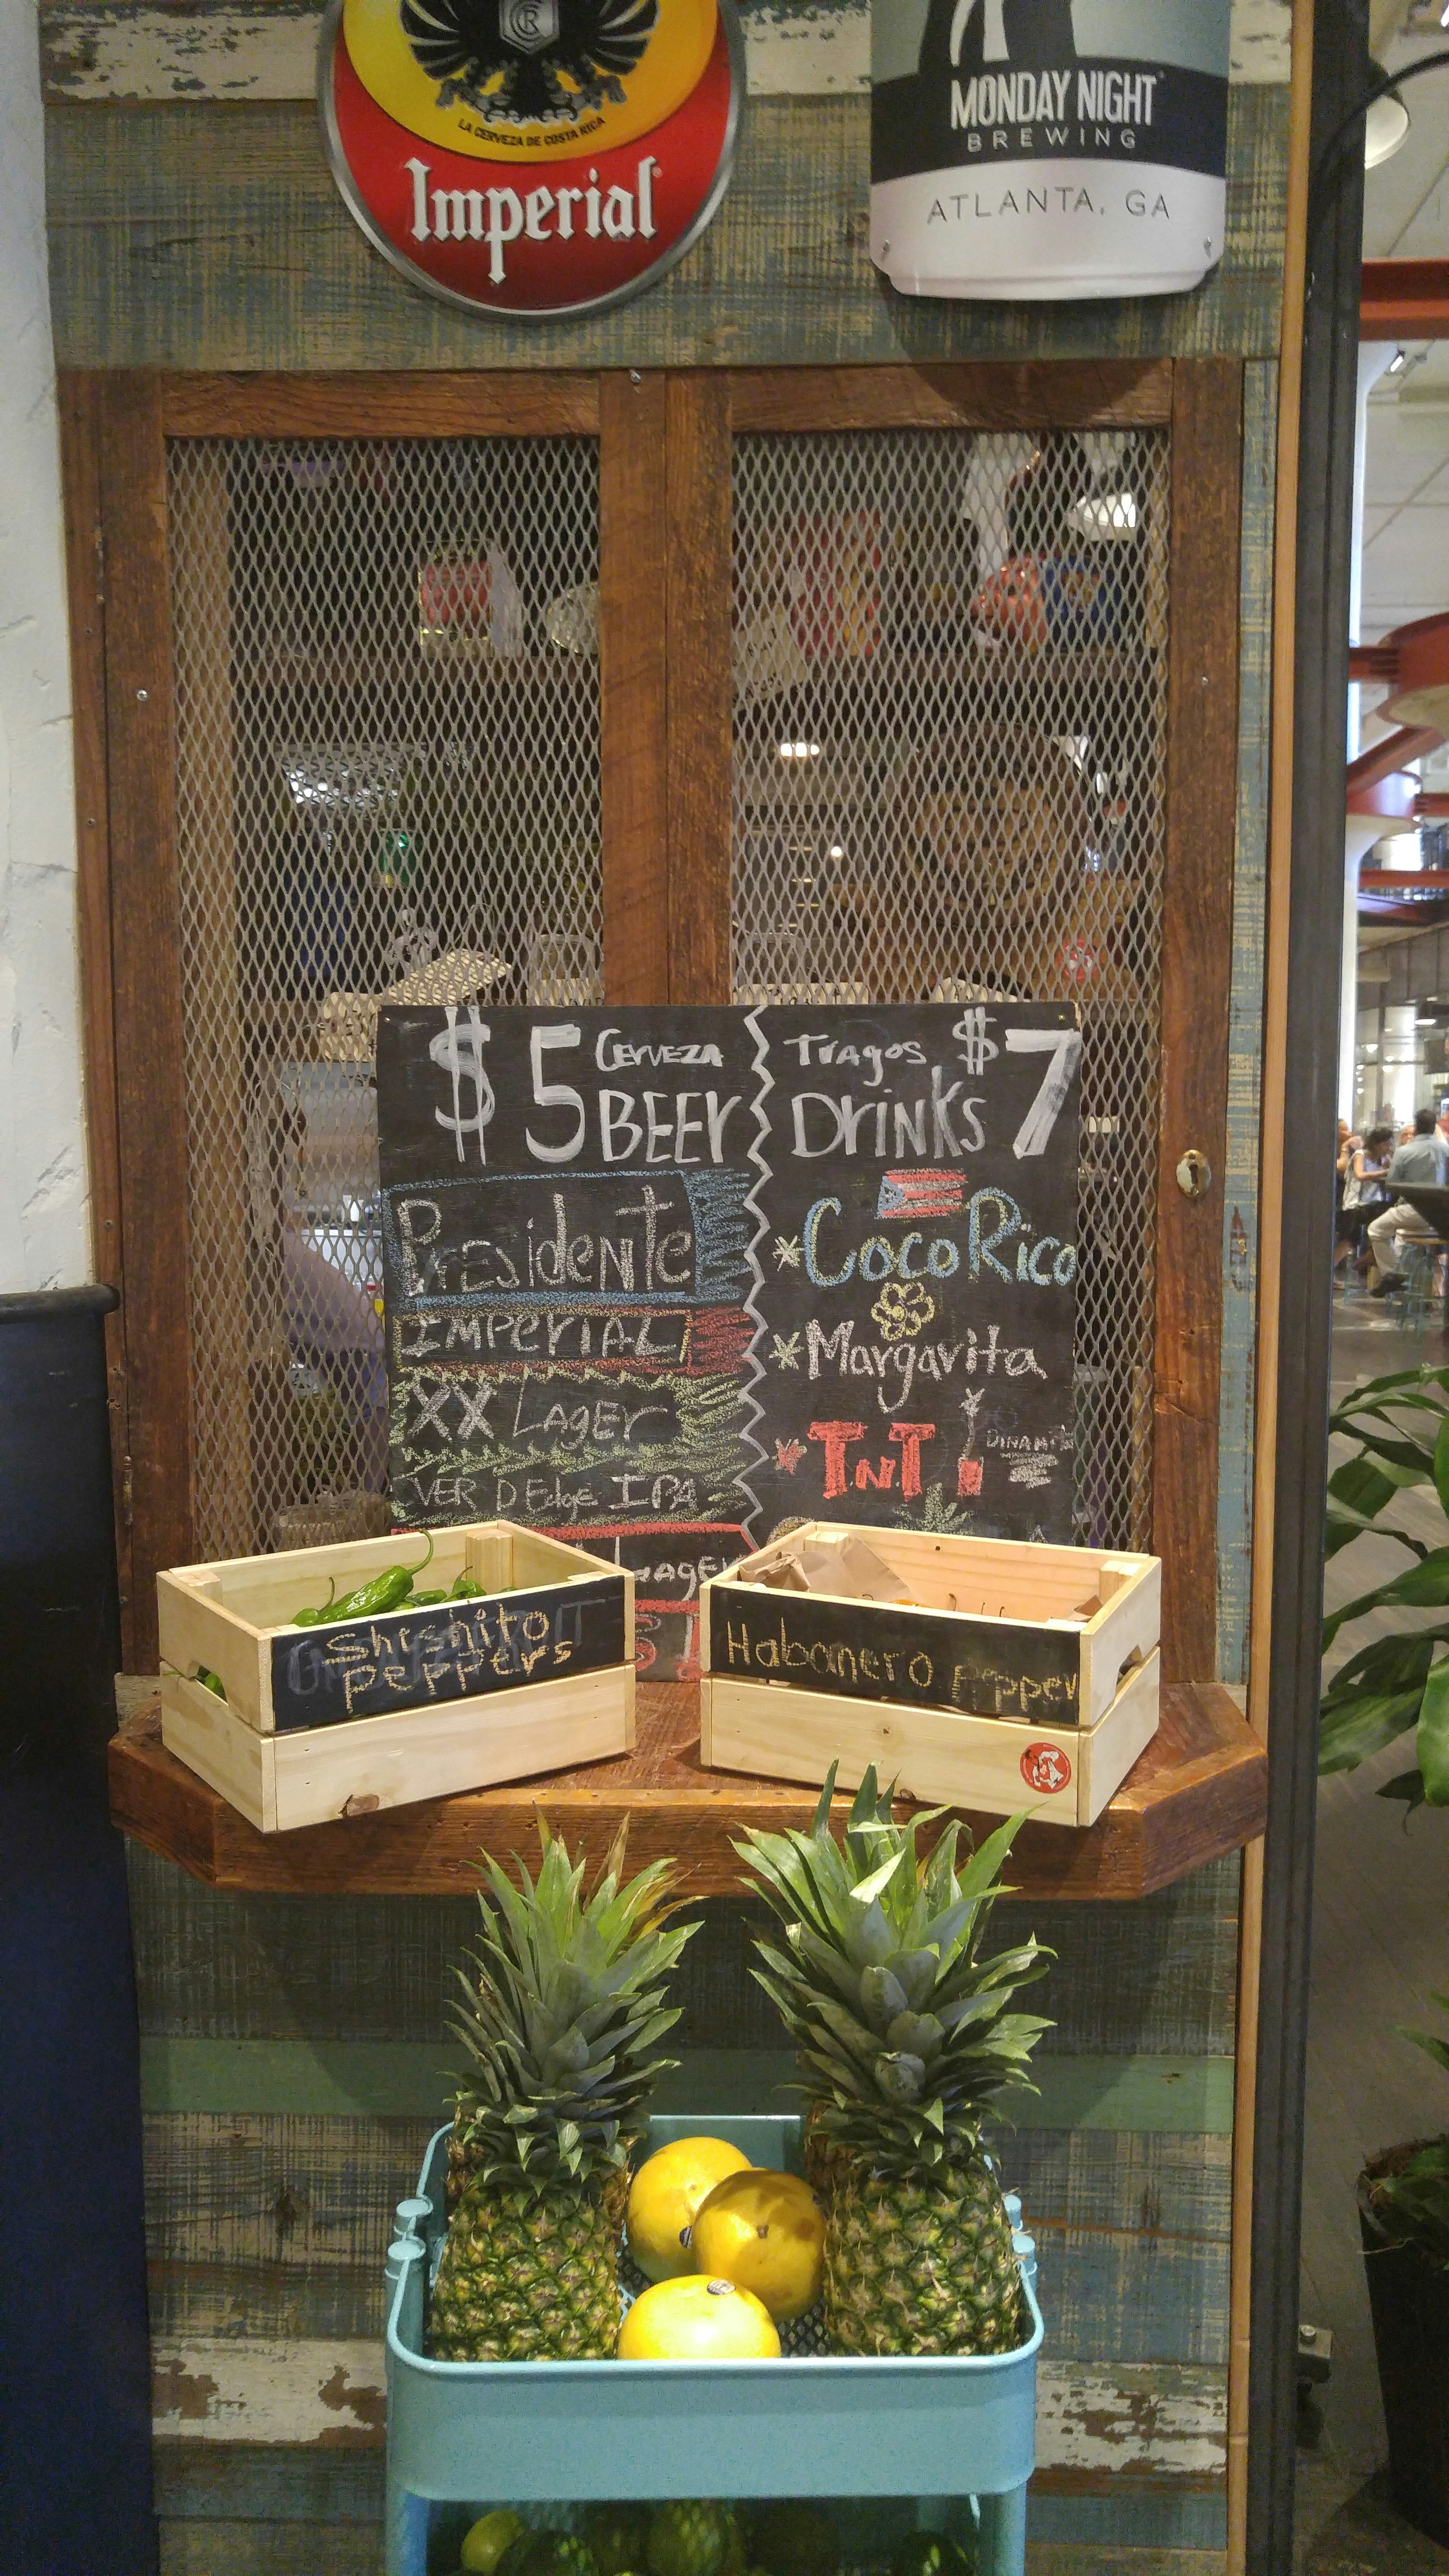 LA CERVEZA DE COSTA RICA
Imperial
MONDAY NIGHT
BREWING
ATLANTA, GA
$5 CERVEZA
BEER
Presidente
IMPERIAL
XX LAGER
VER D Edge IPA
LAGER
Tragos $7
DRINKS
*Coco Rico
*Margarita
*T.N.T
DINAMITE
Shishito
peppers
Habanero pepper